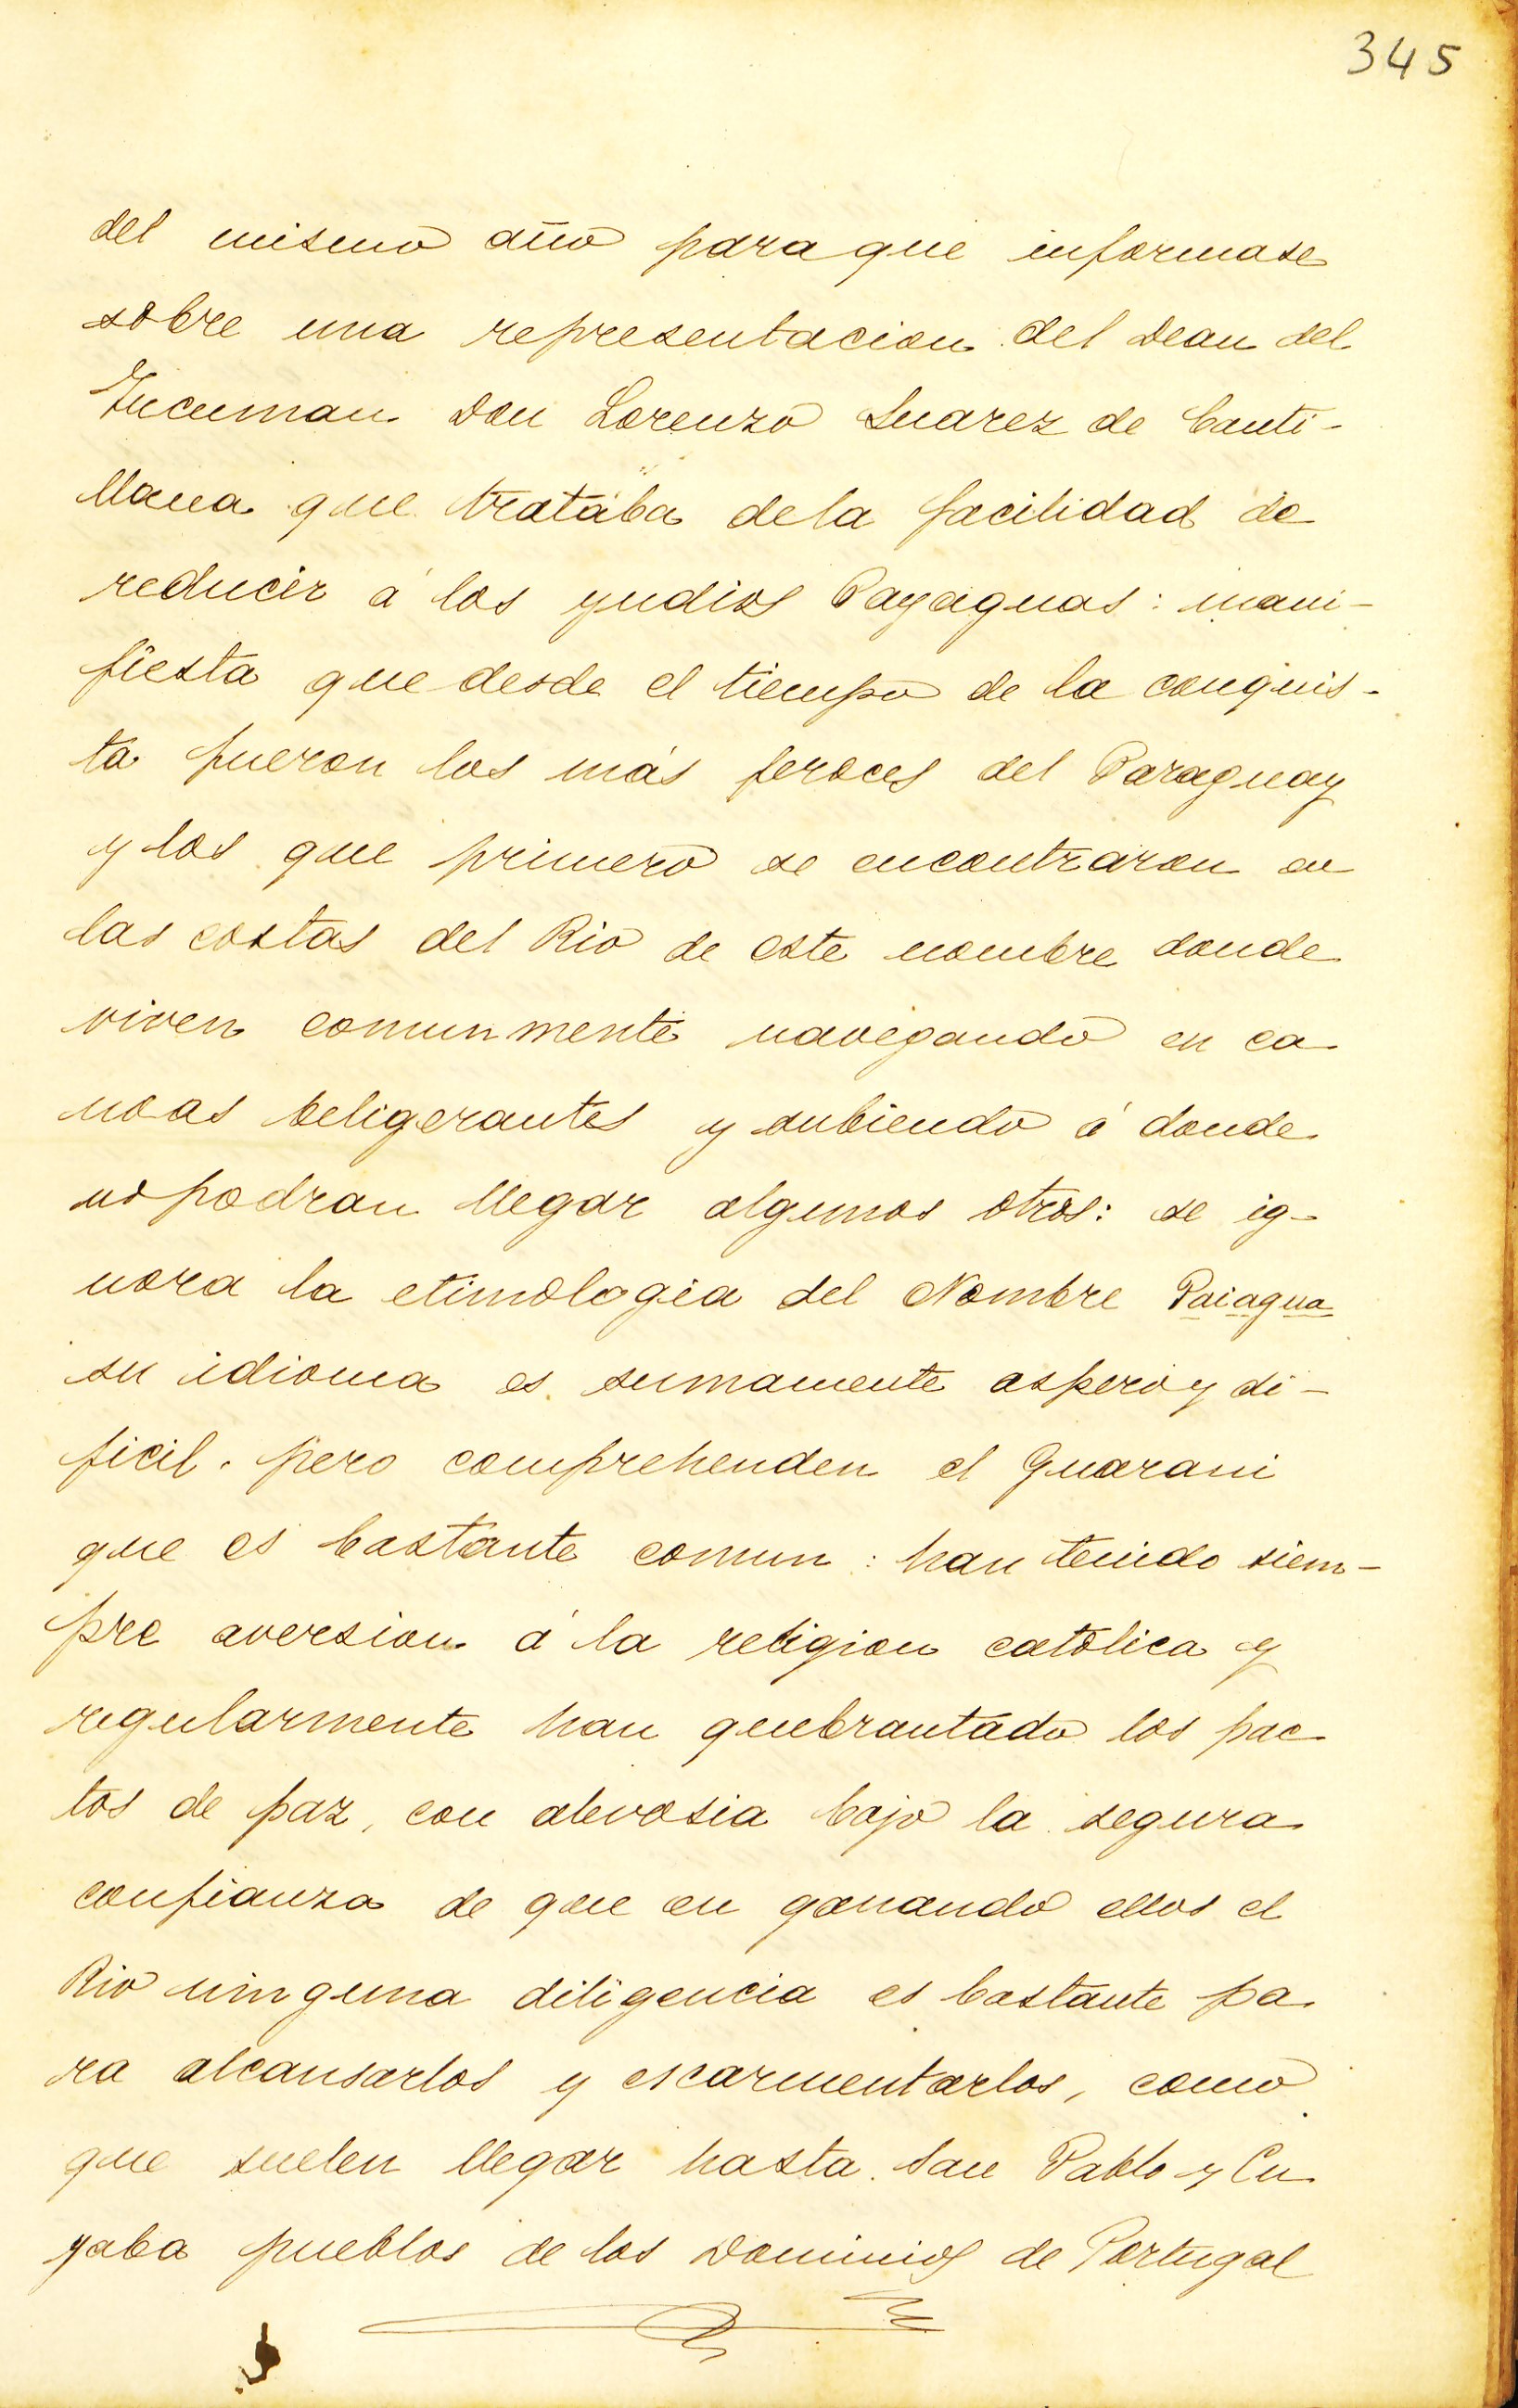 345
del mismo año para que informase
sobre una representacion del Dean del
Tucuman Don Lorenzo Suarez de Canti-
llana que trataba dela facilidad de
reducir á los yndios Payaguas: mani-
fiesta que desde el tiempo de la conquis-
ta fueron los más feroces del Paraguay
y los que primero se encontraron en
las costas del Rio de este nombre donde
viven comunmente navegando en ca
noas beligerantes y subiendo á donde
no podran llegar algunos otros: se ig-
nora la etimologia del Nombre Paiagua
su idioma es sumamente aspero y di-
ficil. pero comprehenden el Guarani
que es bastante comun: han tenido siem-
pre aversion á la religion católica y
regularmente han quebrantado los pac
tos de paz, con alevosia bajo la segura
confianza de que en ganando ellos el
Rio ninguna diligencia es bastante pa
ra alcansarlos y escarmentarlos, como
que suelen llegar hasta San Pablo y Cu
yaba pueblos de los Dominios de Portugal